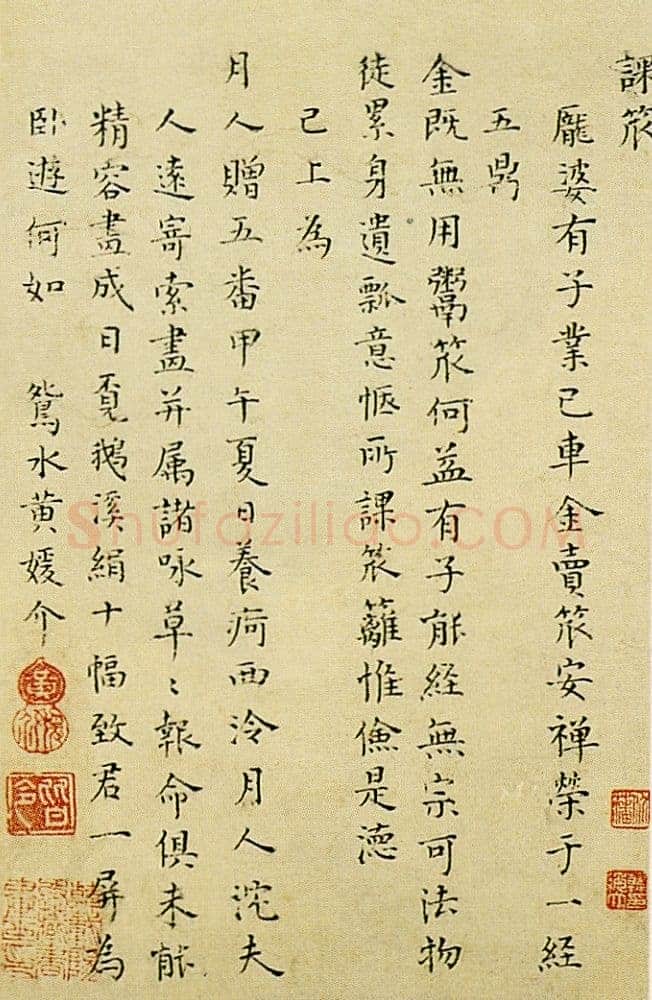 課笊
龐婆有子業已車金賣笊安禪榮于一經
五鼎
金既無用鬻笊何益有子能經無宗可法物
徒累身遺瓢意愜所課笊籬惟儉是德
已上為
月人贈五番甲午夏日養疴西泠月人從夫
人遠寄索畫并屬諸咏草〻報命俱未能
精容畫成日覓鵝溪絹十幅致君一屏為
臥遊何如　鴛水黃媛介
Shufaziliao.COM